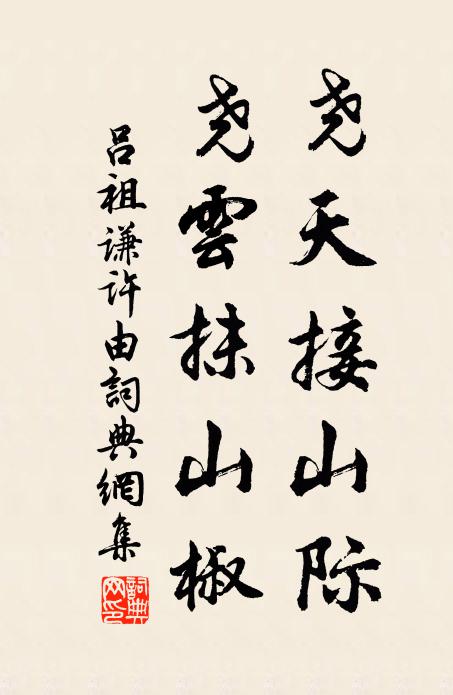 尧天接山际
尧雲抹山椒
吕祖謙许由詞典網集
詞典网印